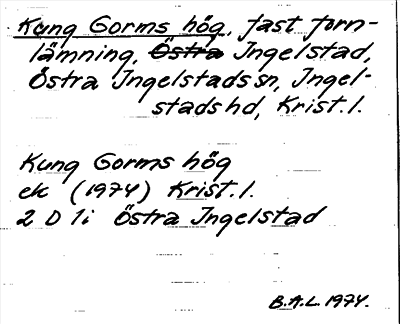 Kung Gorms hög, fast forn-
lämning, Östra Ingelstad,
Östra Ingelstads sn, Ingel-
stads hd, Krist.l.
Kung Gorms hög
ek (1974) Krist.l.
2 D 1i Östra Ingelstad
B.A.L. 1974.